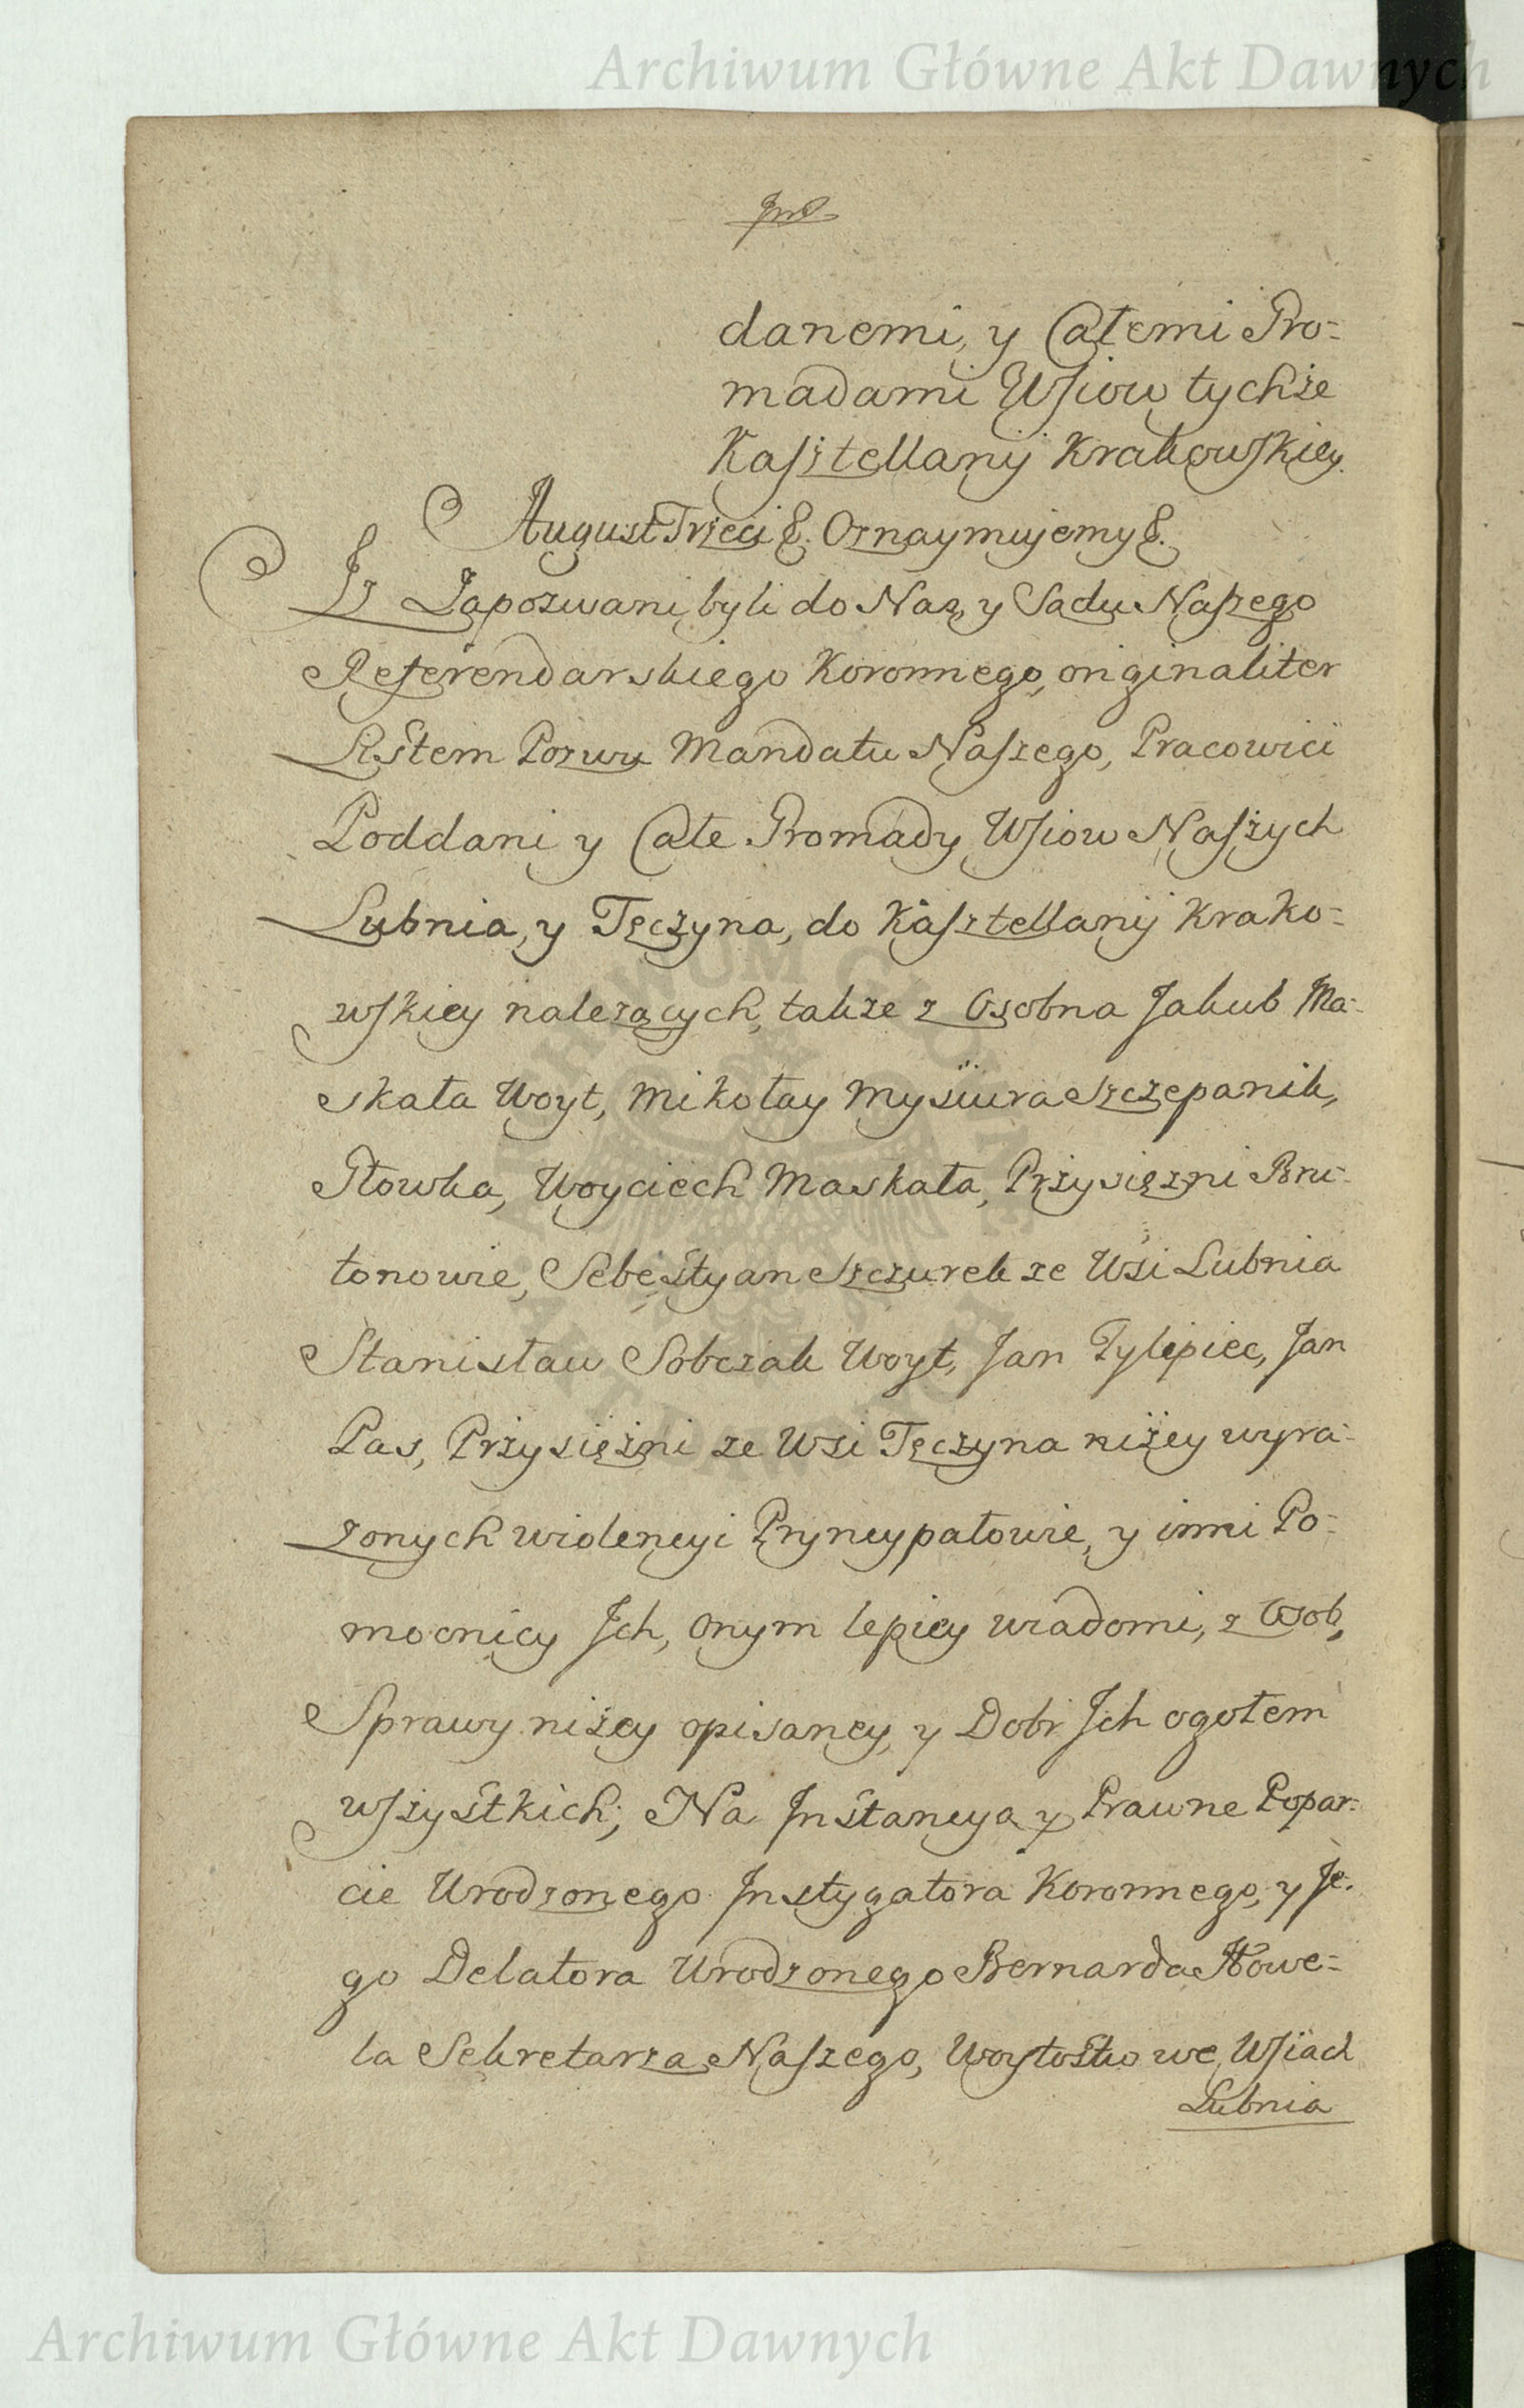 Archiwum Główne Akt Dawnych
danemi, y Całemi Gro-
madami Wsiow tychże
Kasztellanij Krakowskiey.
August Trzeci &. Oznaymujemy &.
Iż Zapozwani byli do Nas, y Sądu Naszego
Referendarskiego Koronnego, originaliter
Listem Pozwu Mandatu Naszego, Pracowici
Poddani y Całe Gromady Wsiow Naszych
Lubnia, y Tęczyna, do Kasztellanij Krako-
wskiey należących, także z Osobna Jakub Ma-
skała Woyt, Mikołay Mysiura Szczepanik,
Głowka, Woyciech Maskała, Przysiężni Bru-
tonowie, Sebestyan Szczurek ze Wsi Lubnia
Stanisław Sobczak Woyt, Jan Pylipiec, Jan
Pas, Przysiężni ze Wsi Tęczyna niżey wyra-
żonych wiolencyi Pryncypałowie, y inni Po-
mocnicy Ich, Onym lepiey wiadomi, z Osob,
Sprawy niżey opisaney, y Dobr Ich ogołem
wszystkich; Na Instancyą y Prawne Popar-
cie Urodzonego Instygatora Koronnego, y Je-
go Delatora Urodzonego Bernarda Howe-
la Sekretarza Naszego, Woytostwo we Wsiach
Lubnia
Archiwum Główne Akt Dawnych